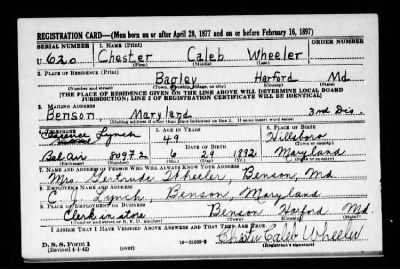 REGISTRATION CARD—(Men born on or after April 28, 1877 and on or before February 16, 1897)
SERIAL NUMBER 1. NAME (Print) ORDER NUMBER
U 620 Chester Caleb Wheeler
(First) (Middle) (Last)
2. PLACE OF RESIDENCE (Print)
Bagley Harford Md
(Number and street) (Town, township, village, or city) (County) (State)
[THE PLACE OF RESIDENCE GIVEN ON THE LINE ABOVE WILL DETERMINE LOCAL BOARD
JURISDICTION; LINE 2 OF REGISTRATION CERTIFICATE WILL BE IDENTICAL]
3. MAILING ADDRESS
Benson Maryland 3rd Dis.
[Mailing address if other than place indicated on line 2. If same insert word same]
4. TELEPHONE 5. AGE IN YEARS 6. PLACE OF BIRTH
Lynch 49 Hillsboro
DATE OF BIRTH (Town or county)
Bel Air 809 F 2 6 24 1892 Maryland
(Exchange) (Number) (Mo.) (Day) (Yr.) (State or country)
7. NAME AND ADDRESS OF PERSON WHO WILL ALWAYS KNOW YOUR ADDRESS
Mrs Gertrude Wheeler, Benson, Md
8. EMPLOYER'S NAME AND ADDRESS
C. J. Lynch, Benson, Maryland
9. PLACE OF EMPLOYMENT OR BUSINESS
Clerk in store Benson Harford Md
(Number and street or R. F. D. number) (Town) (County) (State)
I AFFIRM THAT I HAVE VERIFIED ABOVE ANSWERS AND THAT THEY ARE TRUE.
D. S. S. Form 1
(Revised 4-1-42) (over) 16—21630-2 Chester Caleb Wheeler
(Registrant's signature)